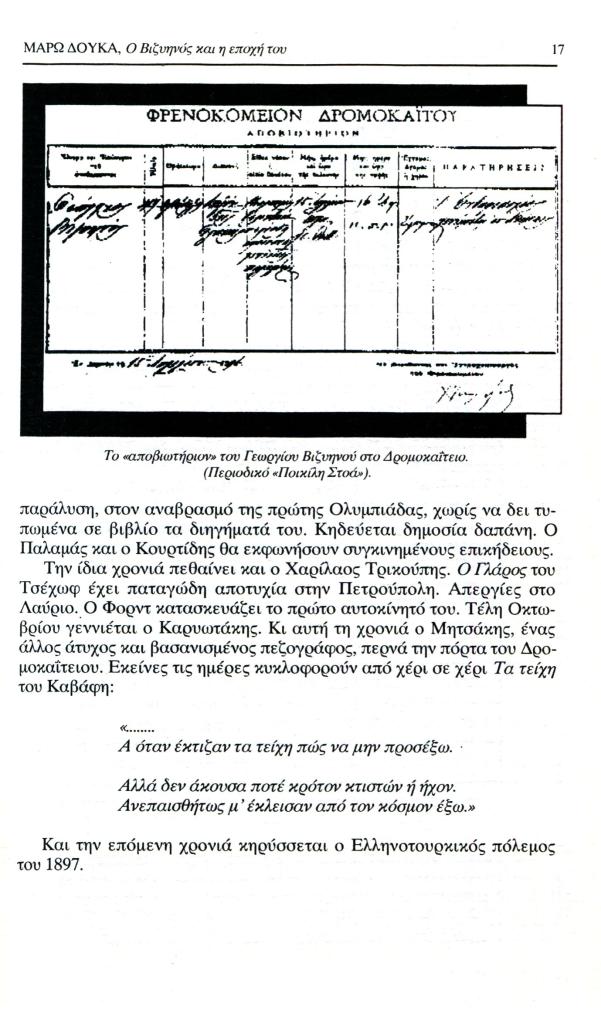 ΜΑΡΩ ΔΟΥΚΑ, Ο Βιζυηνός και η εποχή του 17
ΦΡΕΝΟΚΟΜΕΙΟΝ ΔΡΟΜΟΚΑΪΤΟΥ
ΑΠΟΒΙΩΤΗΡΙΟΝ
ΠΑΡΑΤΗΡΗΣΕΙΣ
Το «αποβιωτήριον» του Γεωργίου Βιζυηνού στο Δρομοκαΐτειο.
(Περιοδικό «Ποικίλη Στοά»).
παράλυση, στον αναβρασμό της πρώτης Ολυμπιάδας, χωρίς να δει τυ-
πωμένα σε βιβλίο τα διηγήματά του. Κηδεύεται δημοσία δαπάνη. Ο
Παλαμάς και ο Κουρτίδης θα εκφωνήσουν συγκινημένους επικήδειους.
Την ίδια χρονιά πεθαίνει και ο Χαρίλαος Τρικούπης. Ο Γλάρος του
Τσέχωφ έχει παταγώδη αποτυχία στην Πετρούπολη. Απεργίες στο
Λαύριο. Ο Φορντ κατασκευάζει το πρώτο αυτοκίνητό του. Τέλη Οκτω-
βρίου γεννιέται ο Καρυωτάκης. Κι αυτή τη χρονιά ο Μητσάκης, ένας
άλλος άτυχος και βασανισμένος πεζογράφος, περνά την πόρτα του Δρο-
μοκαΐτειου. Εκείνες τις ημέρες κυκλοφορούν από χέρι σε χέρι Τα τείχη
του Καβάφη:
«........
Α όταν έκτιζαν τα τείχη πώς να μην προσέξω.
Αλλά δεν άκουσα ποτέ κρότον κτιστών ή ήχον.
Ανεπαισθήτως μ' έκλεισαν από τον κόσμον έξω.»
Και την επόμενη χρονιά κηρύσσεται ο Ελληνοτουρκικός πόλεμος
του 1897.